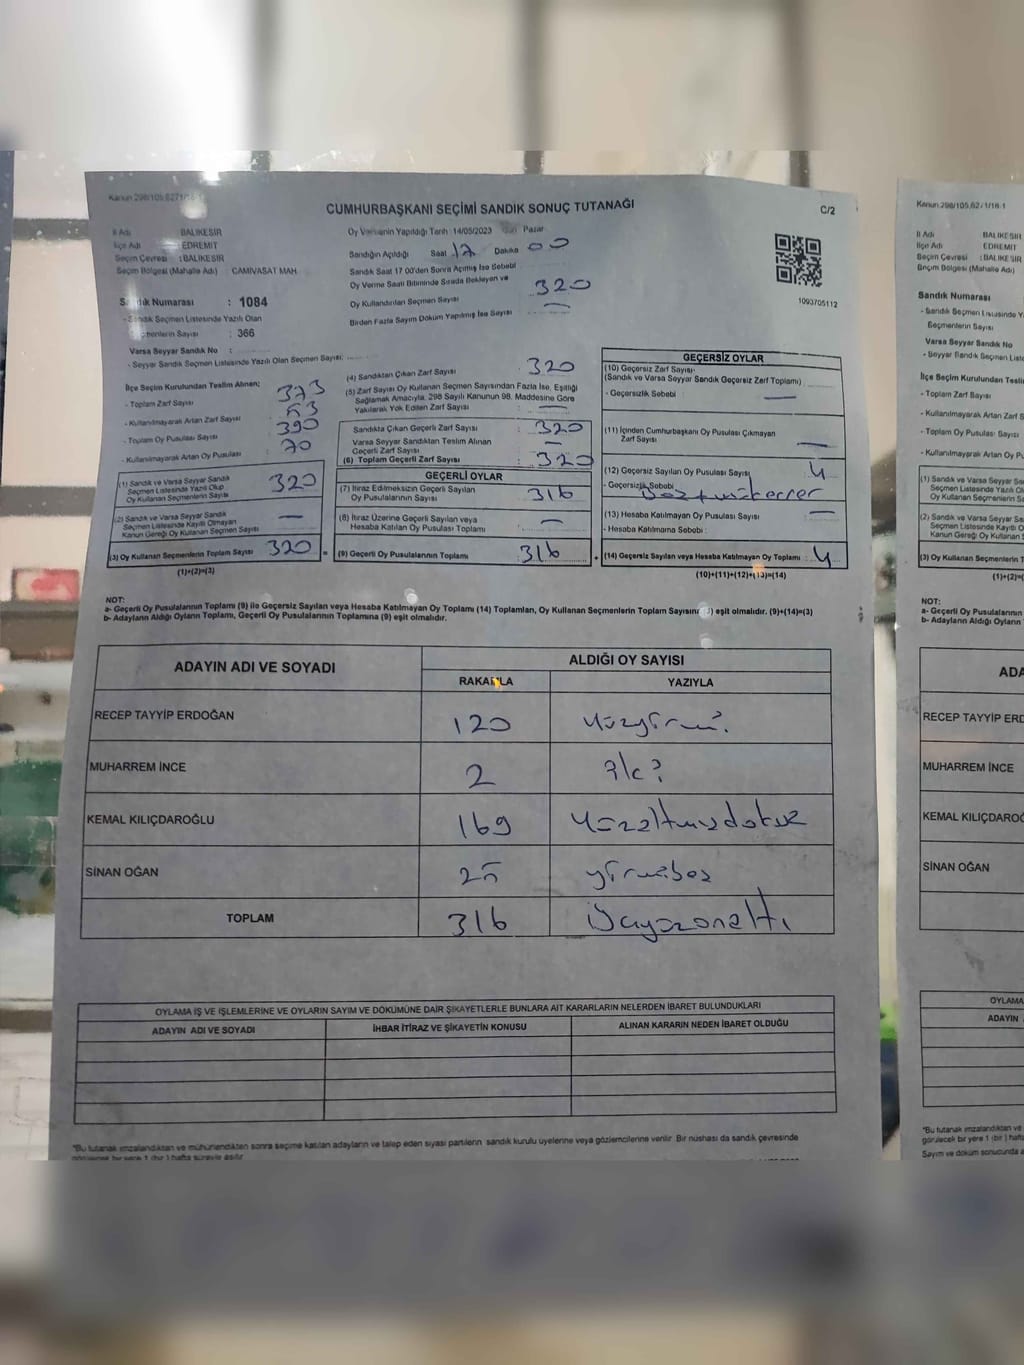 Kanun 298/105,62/1/16-1
CUMHURBAŞKANI SEÇİMİ SANDIK SONUÇ TUTANAĞI
C/2
İl Adı : BALIKESİR
İlçe Adı : EDREMİT
Seçim Çevresi : BALIKESİR
Seçim Bölgesi (Mahalle Adı) CAMİVASAT MAH.
Sandık Numarası : 1084
- Sandık Seçmen Listesinde Yazılı Olan
Seçmenlerin Sayısı : 366
Varsa Seyyar Sandık No :
- Seyyar Sandık Seçmen Listesinde Yazılı Olan Seçmen Sayısı:
Oy Vermenin Yapıldığı Tarih 14/05/2023 Gün Pazar
Sandığın Açıldığı Saat 17 Dakika 00
Sandık Saat 17.00'den Sonra Açılmış İse Sebebi
Oy Verme Saati Bitiminde Sırada Bekleyen ve
Oy Kullandırılan Seçmen Sayısı 320
Birden Fazla Sayım Döküm Yapılmış İse Sayısı —
1093705112
İlçe Seçim Kurulundan Teslim Alınan;
- Toplam Zarf Sayısı 373
- Kullanılmayarak Artan Zarf Sayısı 53
- Toplam Oy Pusulası Sayısı 390
- Kullanılmayarak Artan Oy Pusulası 70
(1) Sandık ve Varsa Seyyar Sandık
Seçmen Listesinde Yazılı Olup
Oy Kullanan Seçmenlerin Sayısı 320
(2) Sandık ve Varsa Seyyar Sandık
Seçmen Listesinde Kayıtlı Olmayan
Kanun Gereği Oy Kullanan Seçmen Sayısı —
(3) Oy Kullanan Seçmenlerin Toplam Sayısı 320 =
(1)+(2)=(3)
(4) Sandıktan Çıkan Zarf Sayısı 320
(5) Zarf Sayısı Oy Kullanan Seçmen Sayısından Fazla İse, Eşitliği
Sağlamak Amacıyla, 298 Sayılı Kanunun 98. Maddesine Göre
Yakılarak Yok Edilen Zarf Sayısı —
Sandıkta Çıkan Geçerli Zarf Sayısı : 320
Varsa Seyyar Sandıktan Teslim Alınan
Geçerli Zarf Sayısı —
(6) Toplam Geçerli Zarf Sayısı : 320
GEÇERLİ OYLAR
(7) İtiraz Edilmeksizin Geçerli Sayılan
Oy Pusulalarının Sayısı : 316
(8) İtiraz Üzerine Geçerli Sayılan veya
Hesaba Katılan Oy Pusulası Toplamı : —
(9) Geçerli Oy Pusulalarının Toplamı 316 +
GEÇERSİZ OYLAR
(10) Geçersiz Zarf Sayısı-
(Sandık ve Varsa Seyyar Sandık Geçersiz Zarf Toplamı)
- Geçersizlik Sebebi : —
(11) İçinden Cumhurbaşkanı Oy Pusulası Çıkmayan
Zarf Sayısı —
(12) Geçersiz Sayılan Oy Pusulası Sayısı 4
- Geçersizlik Sebebi :
(13) Hesaba Katılmayan Oy Pusulası Sayısı —
- Hesaba Katılmama Sebebi :
(14) Geçersiz Sayılan veya Hesaba Katılmayan Oy Toplamı : 4
(10)+(11)+(12)+(13)=(14)
NOT:
a- Geçerli Oy Pusulalarının Toplamı (9) ile Geçersiz Sayılan veya Hesaba Katılmayan Oy Toplamı (14) Toplamları, Oy Kullanan Seçmenlerin Toplam Sayısına (3) eşit olmalıdır. (9)+(14)=(3)
b- Adayların Aldığı Oyların Toplamı, Geçerli Oy Pusulalarının Toplamına (9) eşit olmalıdır.
ADAYIN ADI VE SOYADI ALDIĞI OY SAYISI
RAKAMLA YAZIYLA
RECEP TAYYİP ERDOĞAN 120 Yüzyirmi
MUHARREM İNCE 2 İki
KEMAL KILIÇDAROĞLU 169 Yüzaltmışdokuz
SİNAN OĞAN 25 yirmibeş
TOPLAM 316 Üçyüzonaltı
OYLAMA İŞ VE İŞLEMLERİNE VE OYLARIN SAYIM VE DÖKÜMÜNE DAİR ŞİKAYETLERLE BUNLARA AİT KARARLARIN NELERDEN İBARET BULUNDUKLARI
ADAYIN ADI VE SOYADI İHBAR İTİRAZ VE ŞİKAYETİN KONUSU ALINAN KARARIN NEDEN İBARET OLDUĞU
*Bu tutanak imzalandıktan ve mühürlendikten sonra seçime katılan adayların ve talep eden siyasi partilerin sandık kurulu üyelerine veya gözlemcilerine verilir. Bir nüshası da sandık çevresinde
görülecek bir yere 1 (bir) hafta süreyle asılır.
Kanun 298/105,62/1/16-1
İl Adı BALIKESİR
İlçe Adı : EDREMİT
Seçim Çevresi : BALIKESİR
Seçim Bölgesi (Mahalle Adı)
Sandık Numarası
- Sandık Seçmen Listesinde Y
Seçmenlerin Sayısı
Varsa Seyyar Sandık No
- Seyyar Sandık Seçmen Liste
İlçe Seçim Kurulundan Teslim
- Toplam Zarf Sayısı
- Kullanılmayarak Artan Zarf S
- Toplam Oy Pusulası Sayısı
- Kullanılmayarak Artan Oy P
(1) Sandık ve Varsa Seyyar Sa
Seçmen Listesinde Yazılı Ol
Oy Kullanan Seçmenlerin S
(2) Sandık ve Varsa Seyyar
Seçmen Listesinde Kayıtlı O
Kanun Gereği Oy Kullanan
(3) Oy Kullanan Seçmenlerin T
(1)+(2)=
NOT:
a- Geçerli Oy Pusulalarının
b- Adayların Aldığı Oyların
ADA
RECEP TAYYİP ERD
MUHARREM İNCE
KEMAL KILIÇDAROĞ
SİNAN OĞAN
OYLAMA
ADAYIN
*Bu tutanak imzalandıktan ve
görülecek bir yere 1 (bir) hafta
Sayım ve döküm sonucunda a